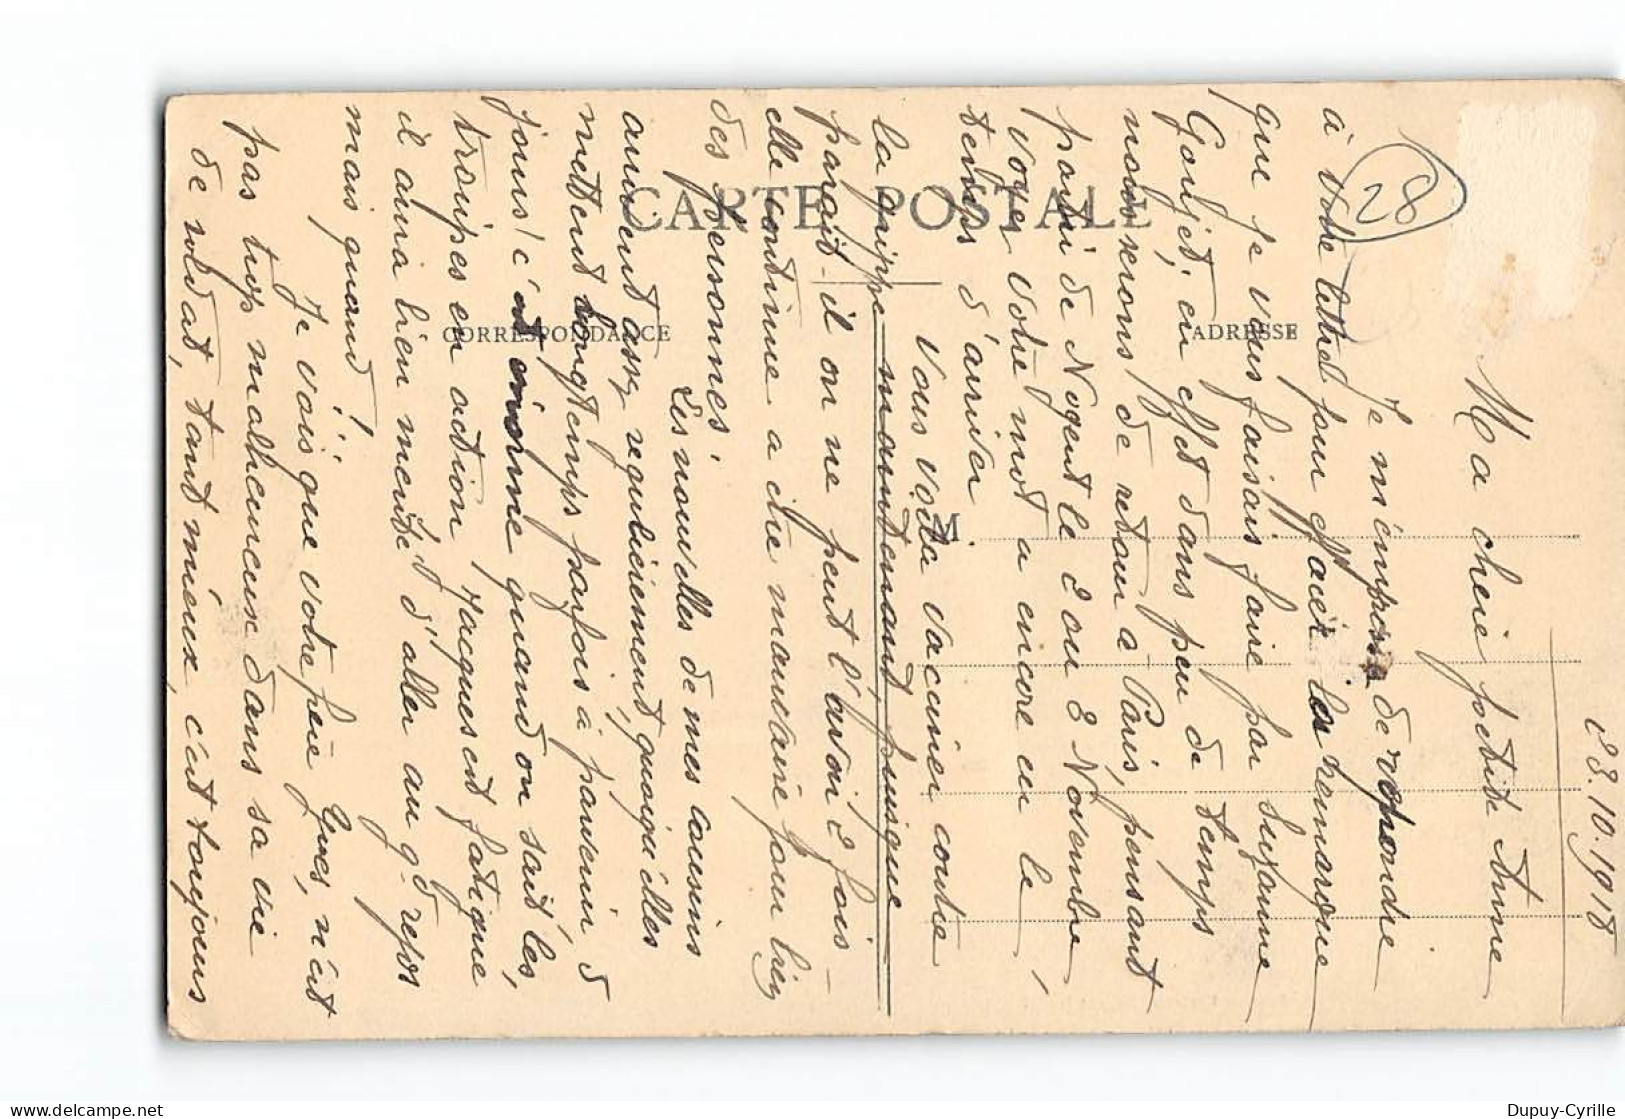 28.10.1918
Ma chère petite Anne
Je m'empresse de répondre
à votre lettre pour effacer la remarque
que je vous faisais faire par Suzanne
Goujet, en effet dans peu de temps
nous serons de retour à Paris, pensant
parti de Nogent le 2 ou 3 Novembre
voyez votre mot a encore eu le
temps d'arriver
Vous voilà vacciner contre
la grippe maintenant, puisque
paraît-il on ne peut l'avoir 2 fois
elle continue a être mauvaise pour bien
des personnes.
Les nouvelles de mes cousins
arrivent assez régulièrement, quoiqu'elles
mettent longtemps parfois à parvenir 5
jours, c'est énorme quand on sait les
troupes en action. Jacques est fatigué
il aura bien mérité d'aller au gd repos
mais quand!...
Je vois que votre père Yves, n'est
pas trop malheureux dans sa vie
de soldat, tant mieux, c'est toujours
CARTE POSTALE
CORRESPONDANCE
ADRESSE
M
28
Dupuy-Cyrille